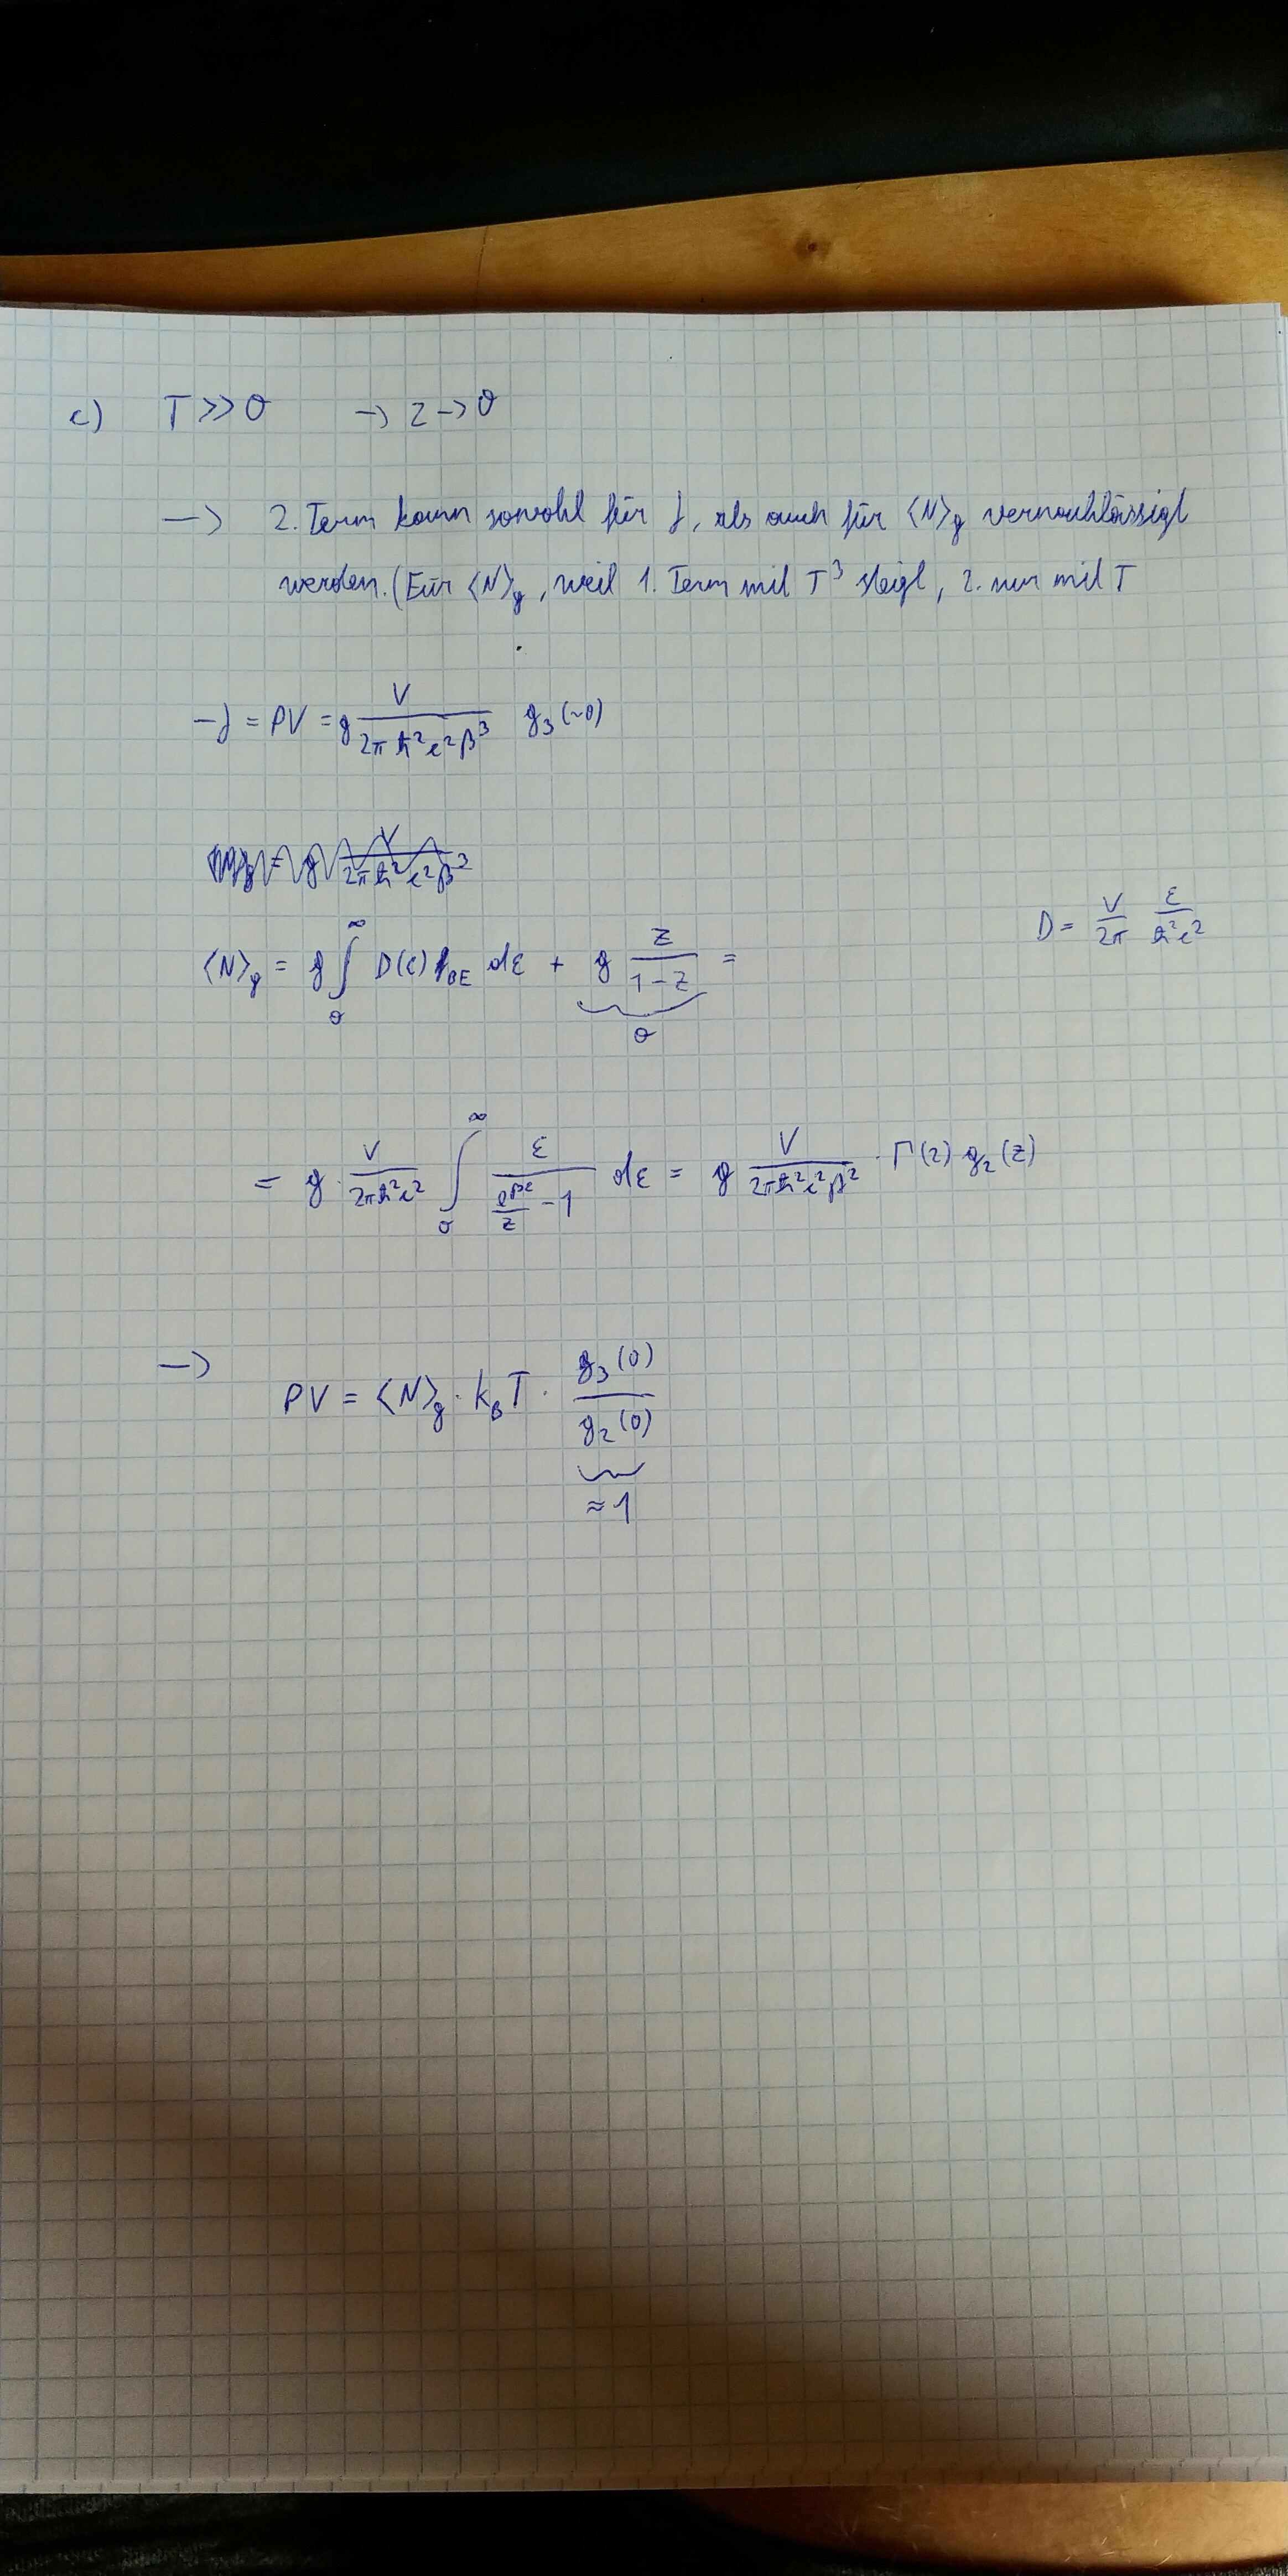 c) T >> 0 → z → 0
→ 2. Term kann sowohl für J, als auch für ⟨N⟩_g vernachlässigt
werden. (Für ⟨N⟩_g, weil 1. Term mit T³ steigt, 2. nur mit T
-J = PV = g V/(2πħ²c²β³) g₃(~0)
D = V/2π ε/(ħ²c²)
⟨N⟩_g = g ∫₀^∞ D(ε) f_BE dε + g z/(1-z) =
0
= g · V/(2πħ²c²) ∫₀^∞ ε/(e^{βε}/z - 1) dε = g V/(2πħ²c²β²) · Γ(2) g₂(z)
→ PV = ⟨N⟩_g · k_B T · g₃(0)/g₂(0)
≈ 1